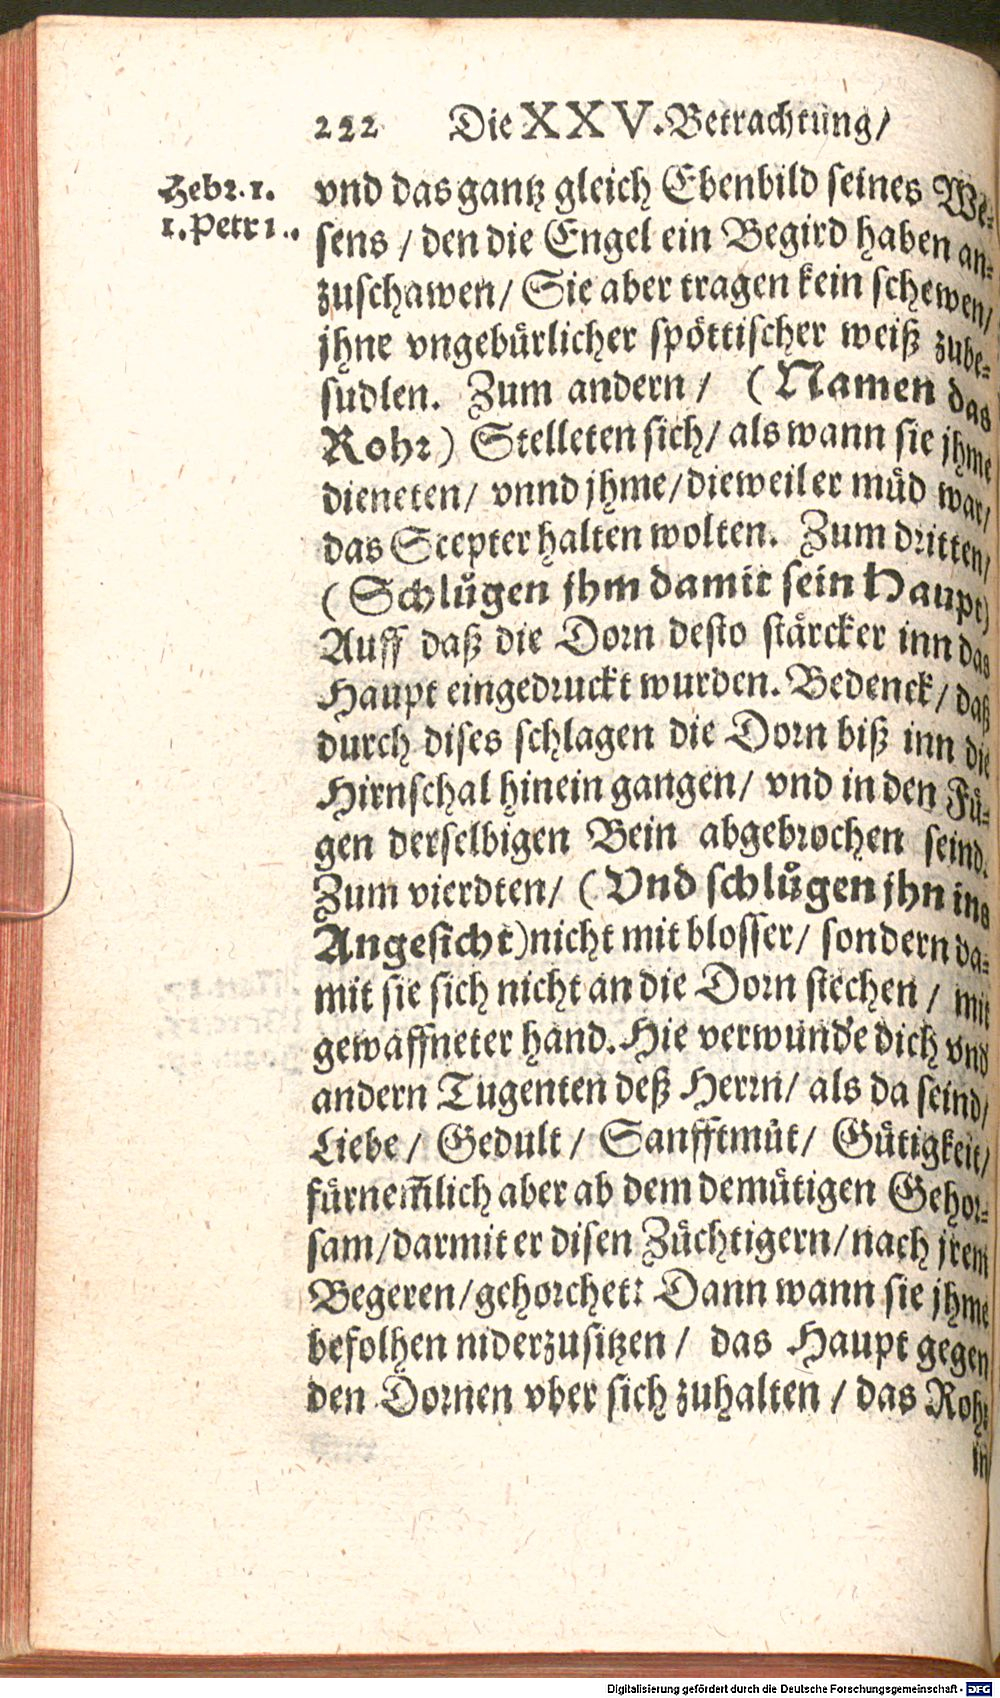 222 Die XXV. Betrachtung/
Hebr. 1.
1. Petr 1..
vnd das gantz gleich Ebenbild seines We-
sens / den die Engel ein Begird haben an-
zuschawen/ Sie aber tragen kein schewen/
jhne vngebürlicher spöttischer weiß zube-
sudlen. Zum andern / (Namen das
Rohr) Stelleten sich/ als wann sie jhme
dieneten/ vnnd jhme/ dieweil er müd war/
das Scepter halten wolten. Zum dritten/
(Schlůgen jhm damit sein Haupt)
Auff daß die Dorn desto stärcker inn das
Haupt eingedruckt wurden. Bedenck/ daß
durch dises schlagen die Dorn biß inn die
Hirnschal hinein gangen/ vnd in den Fů-
gen derselbigen Bein abgebrochen seind.
Zum vierdten/ (Vnd schlůgen jhn ins
Angesicht) nicht mit blosser/ sondern da-
mit sie sich nicht an die Dorn stechen / mit
gewaffneter hand. Hie verwunde dich vnd
andern Tugenten deß Herrn/ als da seind/
Liebe / Gedult / Sanfftmüt/ Gütigkeit/
fürnem̃lich aber ab dem demütigen Gehor-
sam/ darmit er disen Züchtigern/ nach jrem
Begeren/ gehorchet: Dann wann sie jhme
befolhen niderzusitzen / das Haupt gegen
den Dornen vber sich zuhalten / das Rohr
in
Digitalisierung gefördert durch die Deutsche Forschungsgemeinschaft - DFG